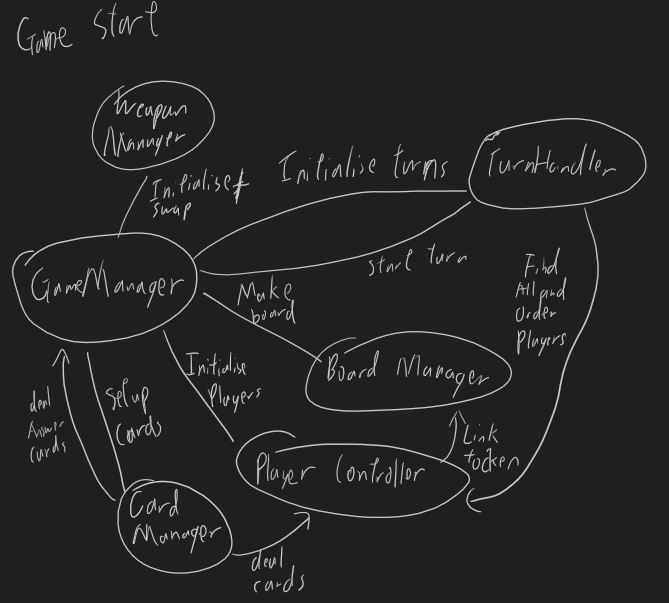 Game Start
Weapon
Manager
Initialise +
swap
Initialise turns
TurnHandler
start turn
GameManager
Make
board
Find
All and
Order
Players
Initialise
Players
Board Manager
deal
Answer
cards
Setup
Cards
Player Controller
Link
tocken
Card
Manager
deal
cards